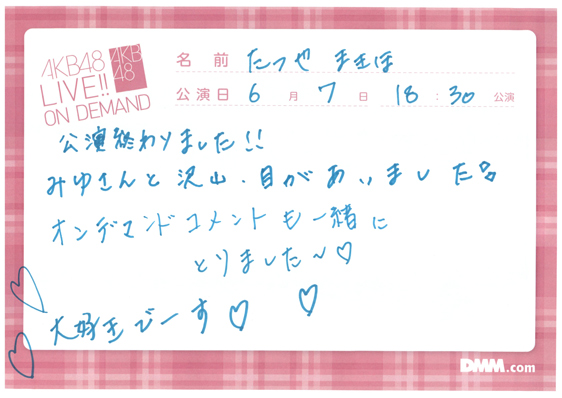 AKB48
LIVE!!
ON DEMAND
AKB
48
名前 たつや まきほ
公演日 6月 7日 18:30 公演
公演終わりました!!
みゆさんと沢山、目があいました
オンデマンドコメントも一緒に
とりました〜♡
大好きでーす♡ ♡
DMM.com